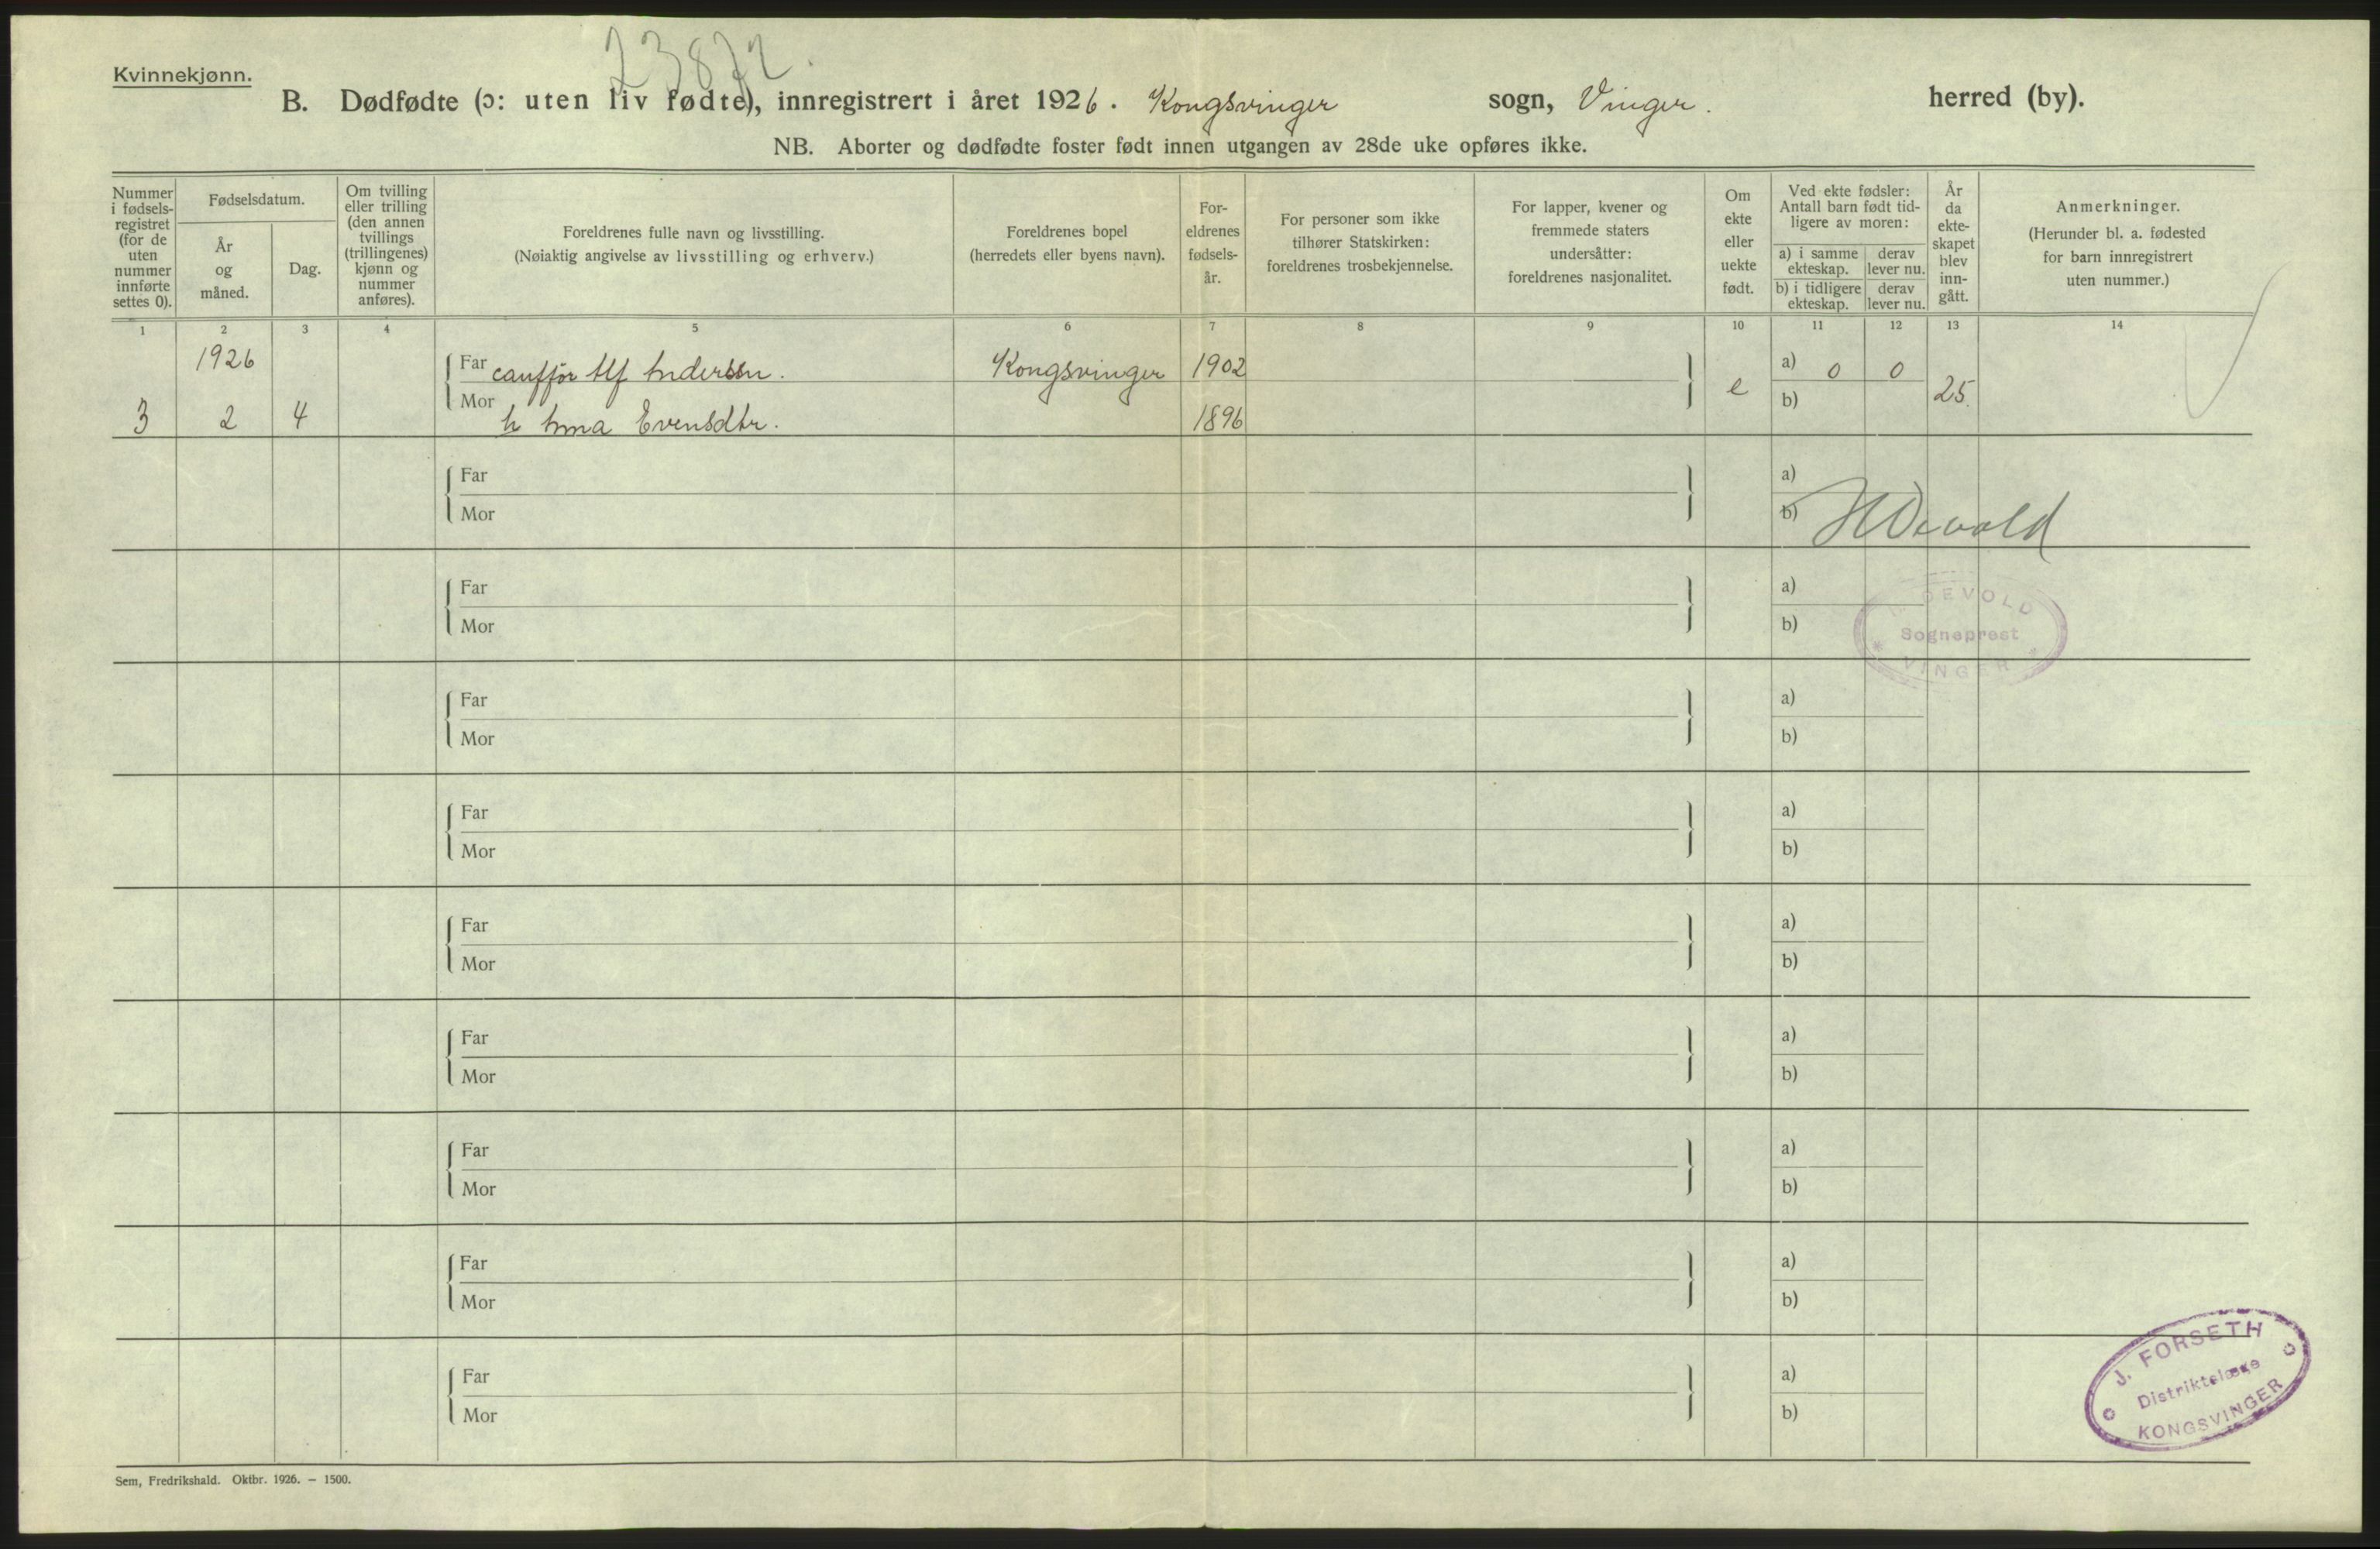 Kvinnekjønn.
23872.
B. Dødfødte (ɔ: uten liv fødte), innregistrert i året 1926. Kongsvinger sogn, Vinger. herred (by).
NB. Aborter og dødfødte foster født innen utgangen av 28de uke opføres ikke.
Nummer
i fødsels-
registret
(for de
uten
nummer
innførte
settes 0).
Fødselsdatum.
År
og
måned.
Dag.
Om tvilling
eller trilling
(den annen
tvillings
(trillingenes)
kjønn og
nummer
anføres).
Foreldrenes fulle navn og livsstilling.
(Nøiaktig angivelse av livsstilling og erhverv.)
Foreldrenes bopel
(herredets eller byens navn).
For-
eldrenes
fødsels-
år.
For personer som ikke
tilhører Statskirken:
foreldrenes trosbekjennelse.
For lapper, kvener og
fremmede staters
undersåtter:
foreldrenes nasjonalitet.
Om
ekte
eller
uekte
født.
Ved ekte fødsler:
Antall barn født tid-
ligere av moren:
a) i samme
ekteskap.
derav
lever nu.
b) i tidligere
ekteskap.
derav
lever nu.
År
da
ekte-
skapet
blev
inn-
gått.
Anmerkninger.
(Herunder bl. a. fødested
for barn innregistrert
uten nummer.)
1 2 3 4 5 6 7 8 9 10 11 12 13 14
1926
Far Alf Anderssn. Kongsvinger 1902 a) 0 0
3 2 4 Mor h Evensdtr. 1896 e b) 25.
Far a)
Mor b)
HDevold
Far a)
Mor b)
H. DEVOLD
Sogneprest
* VINGER *
Far a)
Mor b)
Far a)
Mor b)
Far a)
Mor b)
Far a)
Mor b)
Far a)
Mor b)
Far a)
Mor b)
Far a)
Mor b)
J. FORSETH
Distriktslæge
KONGSVINGER
Sem, Fredrikshald. Oktbr. 1926. — 1500.